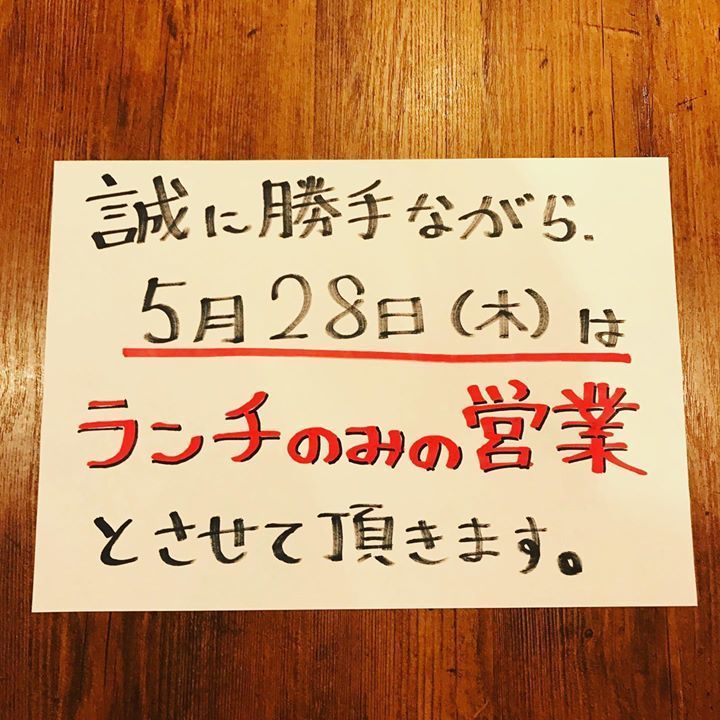 誠に勝手ながら.
5月28日(木)は
ランチのみの営業
とさせて頂きます。